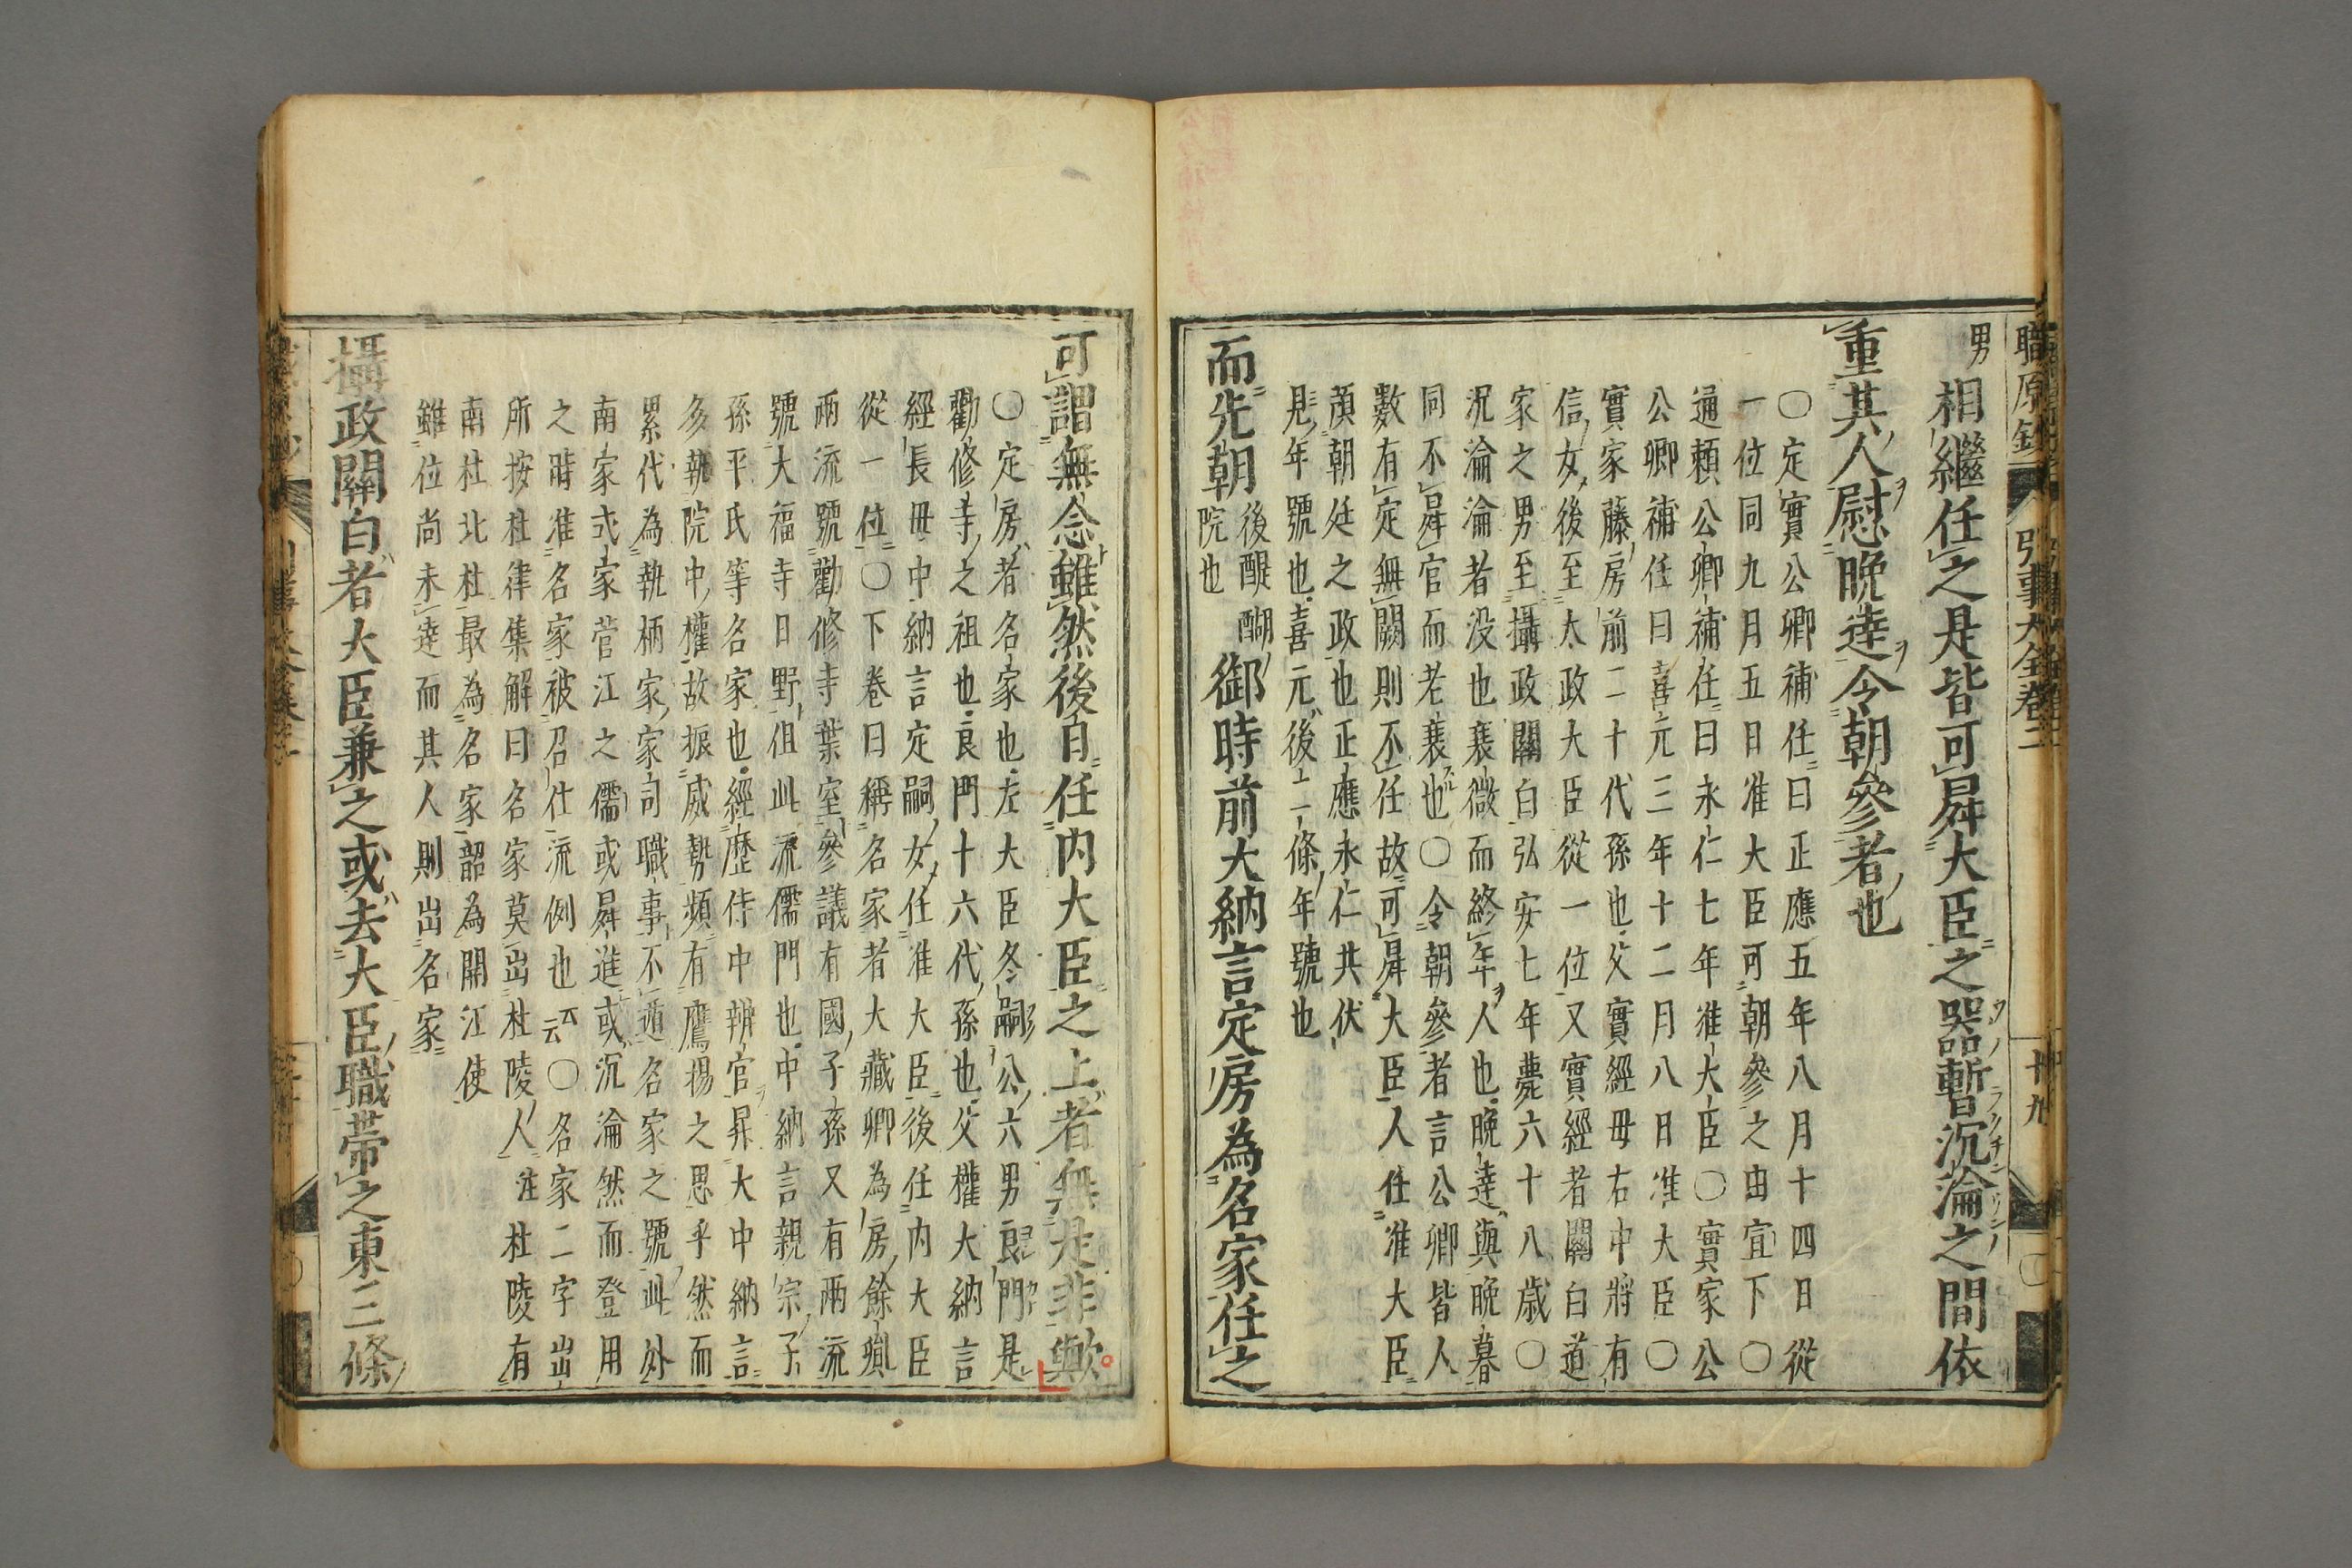 男
相繼任之是皆可昇大臣之器暫沉淪之間依
重其人慰晚達令朝參者也
〇定實公卿補任曰正應五年八月十四日從
一位同九月五日准大臣可朝參之由宣下〇
通賴公卿補任曰永仁七年准大臣〇實家公
公卿補任曰喜元三年十二月八日准大臣〇
實家藤房前二十代孫也父實經母右中將有
信女後至太政大臣從一位又實經者關白道
家之男至攝政關白弘安七年薨六十八歳〇
沉淪淪者没也衰微而終年人也晚達與晚暮
同不昇官而老衰也〇令朝參者言公卿皆人
數有定無闕則不任故可昇大臣人任准大臣
預朝廷之政也正應永仁共伏
見年號也喜元後二條年號也
而先朝
後醍醐
院也
御時前大納言定房為名家任之
可謂無念雖然後自任内大臣之上者無是非歟
〇定房者名家也左大臣冬嗣公六男良門是
勸修寺之祖也良門十六代孫也父權大納言
經長母中納言定嗣女任准大臣後任内大臣
從一位〇下卷曰稱名家者大藏卿為房餘胤
兩流號勸修寺葉室參議有國子孫又有兩流
號大福寺日野但此流儒門也中納言親宗子
孫平氏等名家也經歴侍中辨官昇大中納言
多執院中權故振威勢頻有鷹揚之思乎然而
累代為執柄家家司職事不遁名家之號此外
南家式家菅江之儒或昇進或沉淪然而登用
之時准名家被召仕流例也云云〇名家二字出
所按杜律集解曰名家莫出杜陵人注杜陵有
南杜北杜最為名家韶為開江使
雖位尚未達而其人則出名家
攝政關白者大臣兼之或去大臣職帶之東三條
職原鈔
引事大全卷二
廿九